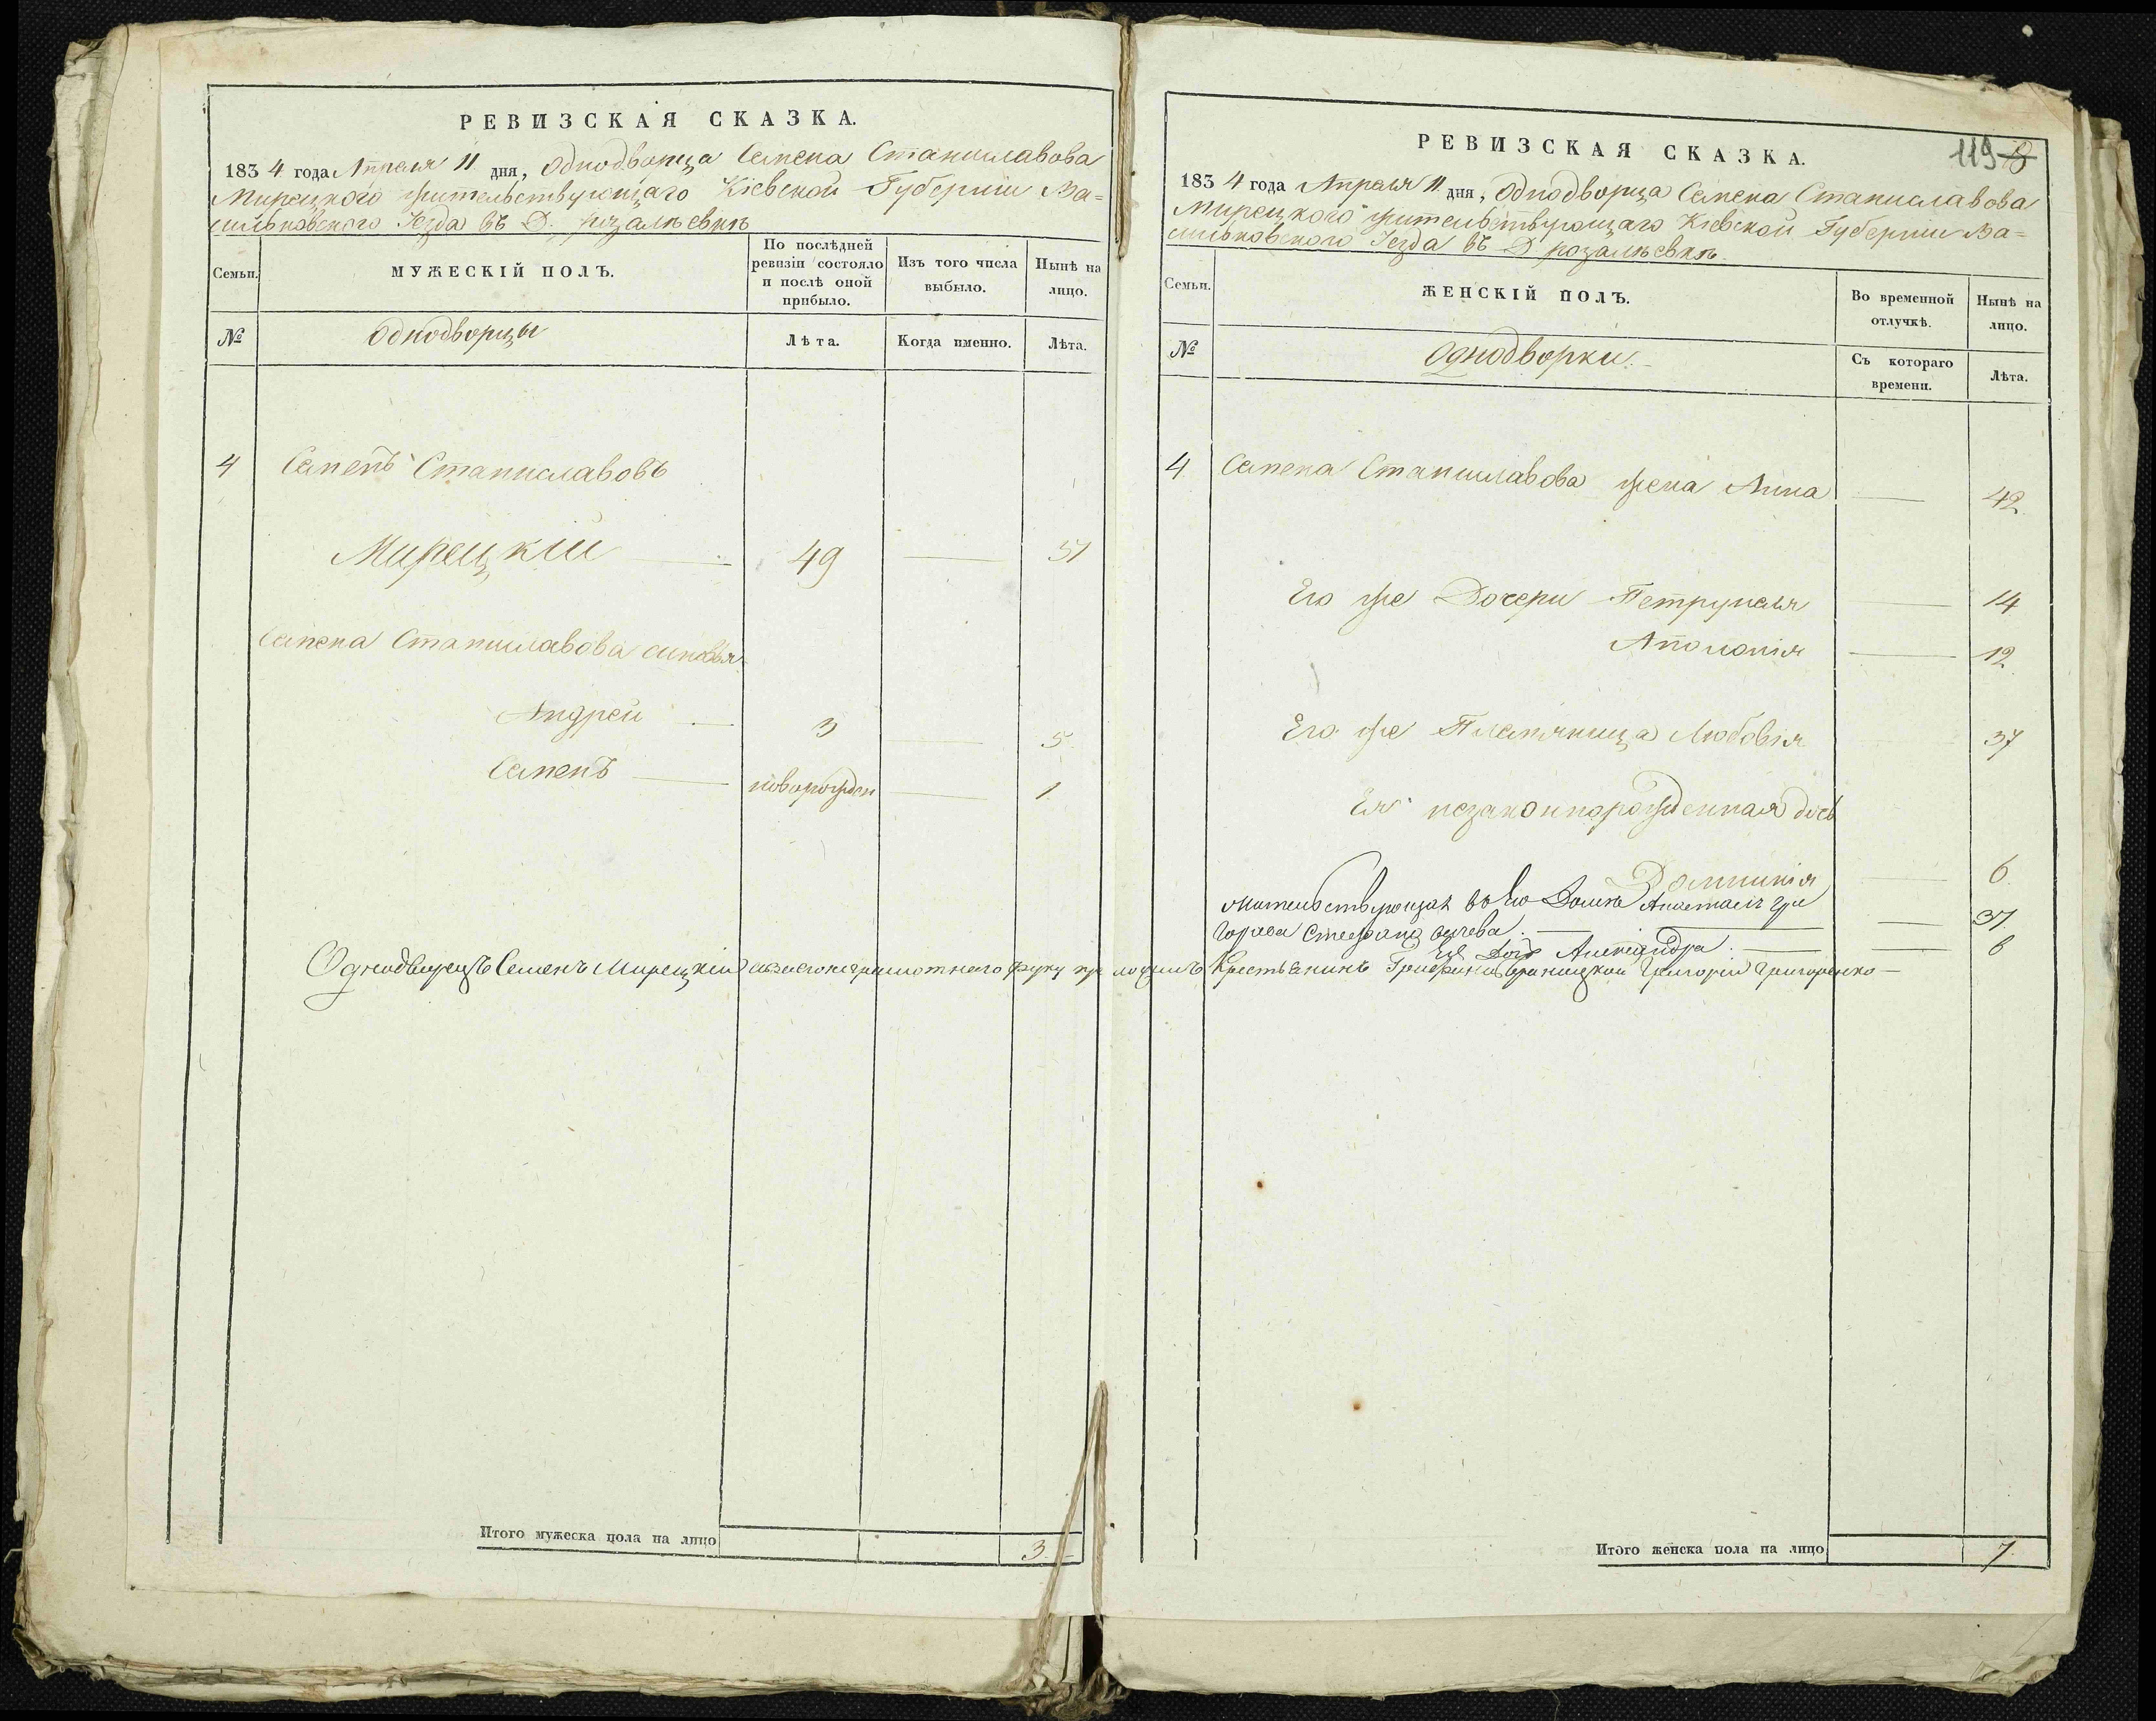 РЕВИЗСКАЯ СКАЗКА.
1834 года Апреля 11 дня, Однодворца Семена Станиславова
Мирецкого жительствующаго Кіевской Губерніи Ва=
сильковского Уезда въ Д. розалѣевкѣ
Семьи.
МУЖЕСКІЙ ПОЛЪ.
По послѣдней ревизіи состояло и послѣ оной прибыло.
Изъ того числа выбыло.
Нынѣ на лицо.
№
Однодворцы
Лѣта.
Когда именно.
Лѣта.
4 Семенъ Станиславовъ
Мирецкій 49 51
Семена Станиславова сыновья
Андрей 3 5
Семенъ новорожден 1
Однодворецъ Семенъ Мирецкій а вместо неграмотного руку приложилъ Крестьянинъ Графини Браницкой Григорій Григоренко
Итого мужеска пола на лицо 3.
119
РЕВИЗСКАЯ СКАЗКА.
1834 года Апреля 11 дня, Однодворца Семена Станиславова
Мирецкого жительствующаго Кіевской Губерніи Ва=
сильковского Уезда въ Д розалѣевкѣ.
Семьи.
ЖЕНСКІЙ ПОЛЪ.
Во временной отлучкѣ.
Нынѣ на лицо.
№
Однодворки.
Съ котораго времени.
Лѣта.
4 Семена Станиславова жена Анна 42
Его же Дочери Петрунеля 14
Аполонія 12
Его же Племяница Любовія 37
Ея незаконнорожденная дочь
Доминикія 6
жительствующая в его Доме Анастасія Гри
горева Стефанцевичева. 37
Ея Дочь Александра. 6
Итого женска пола на лицо 7.